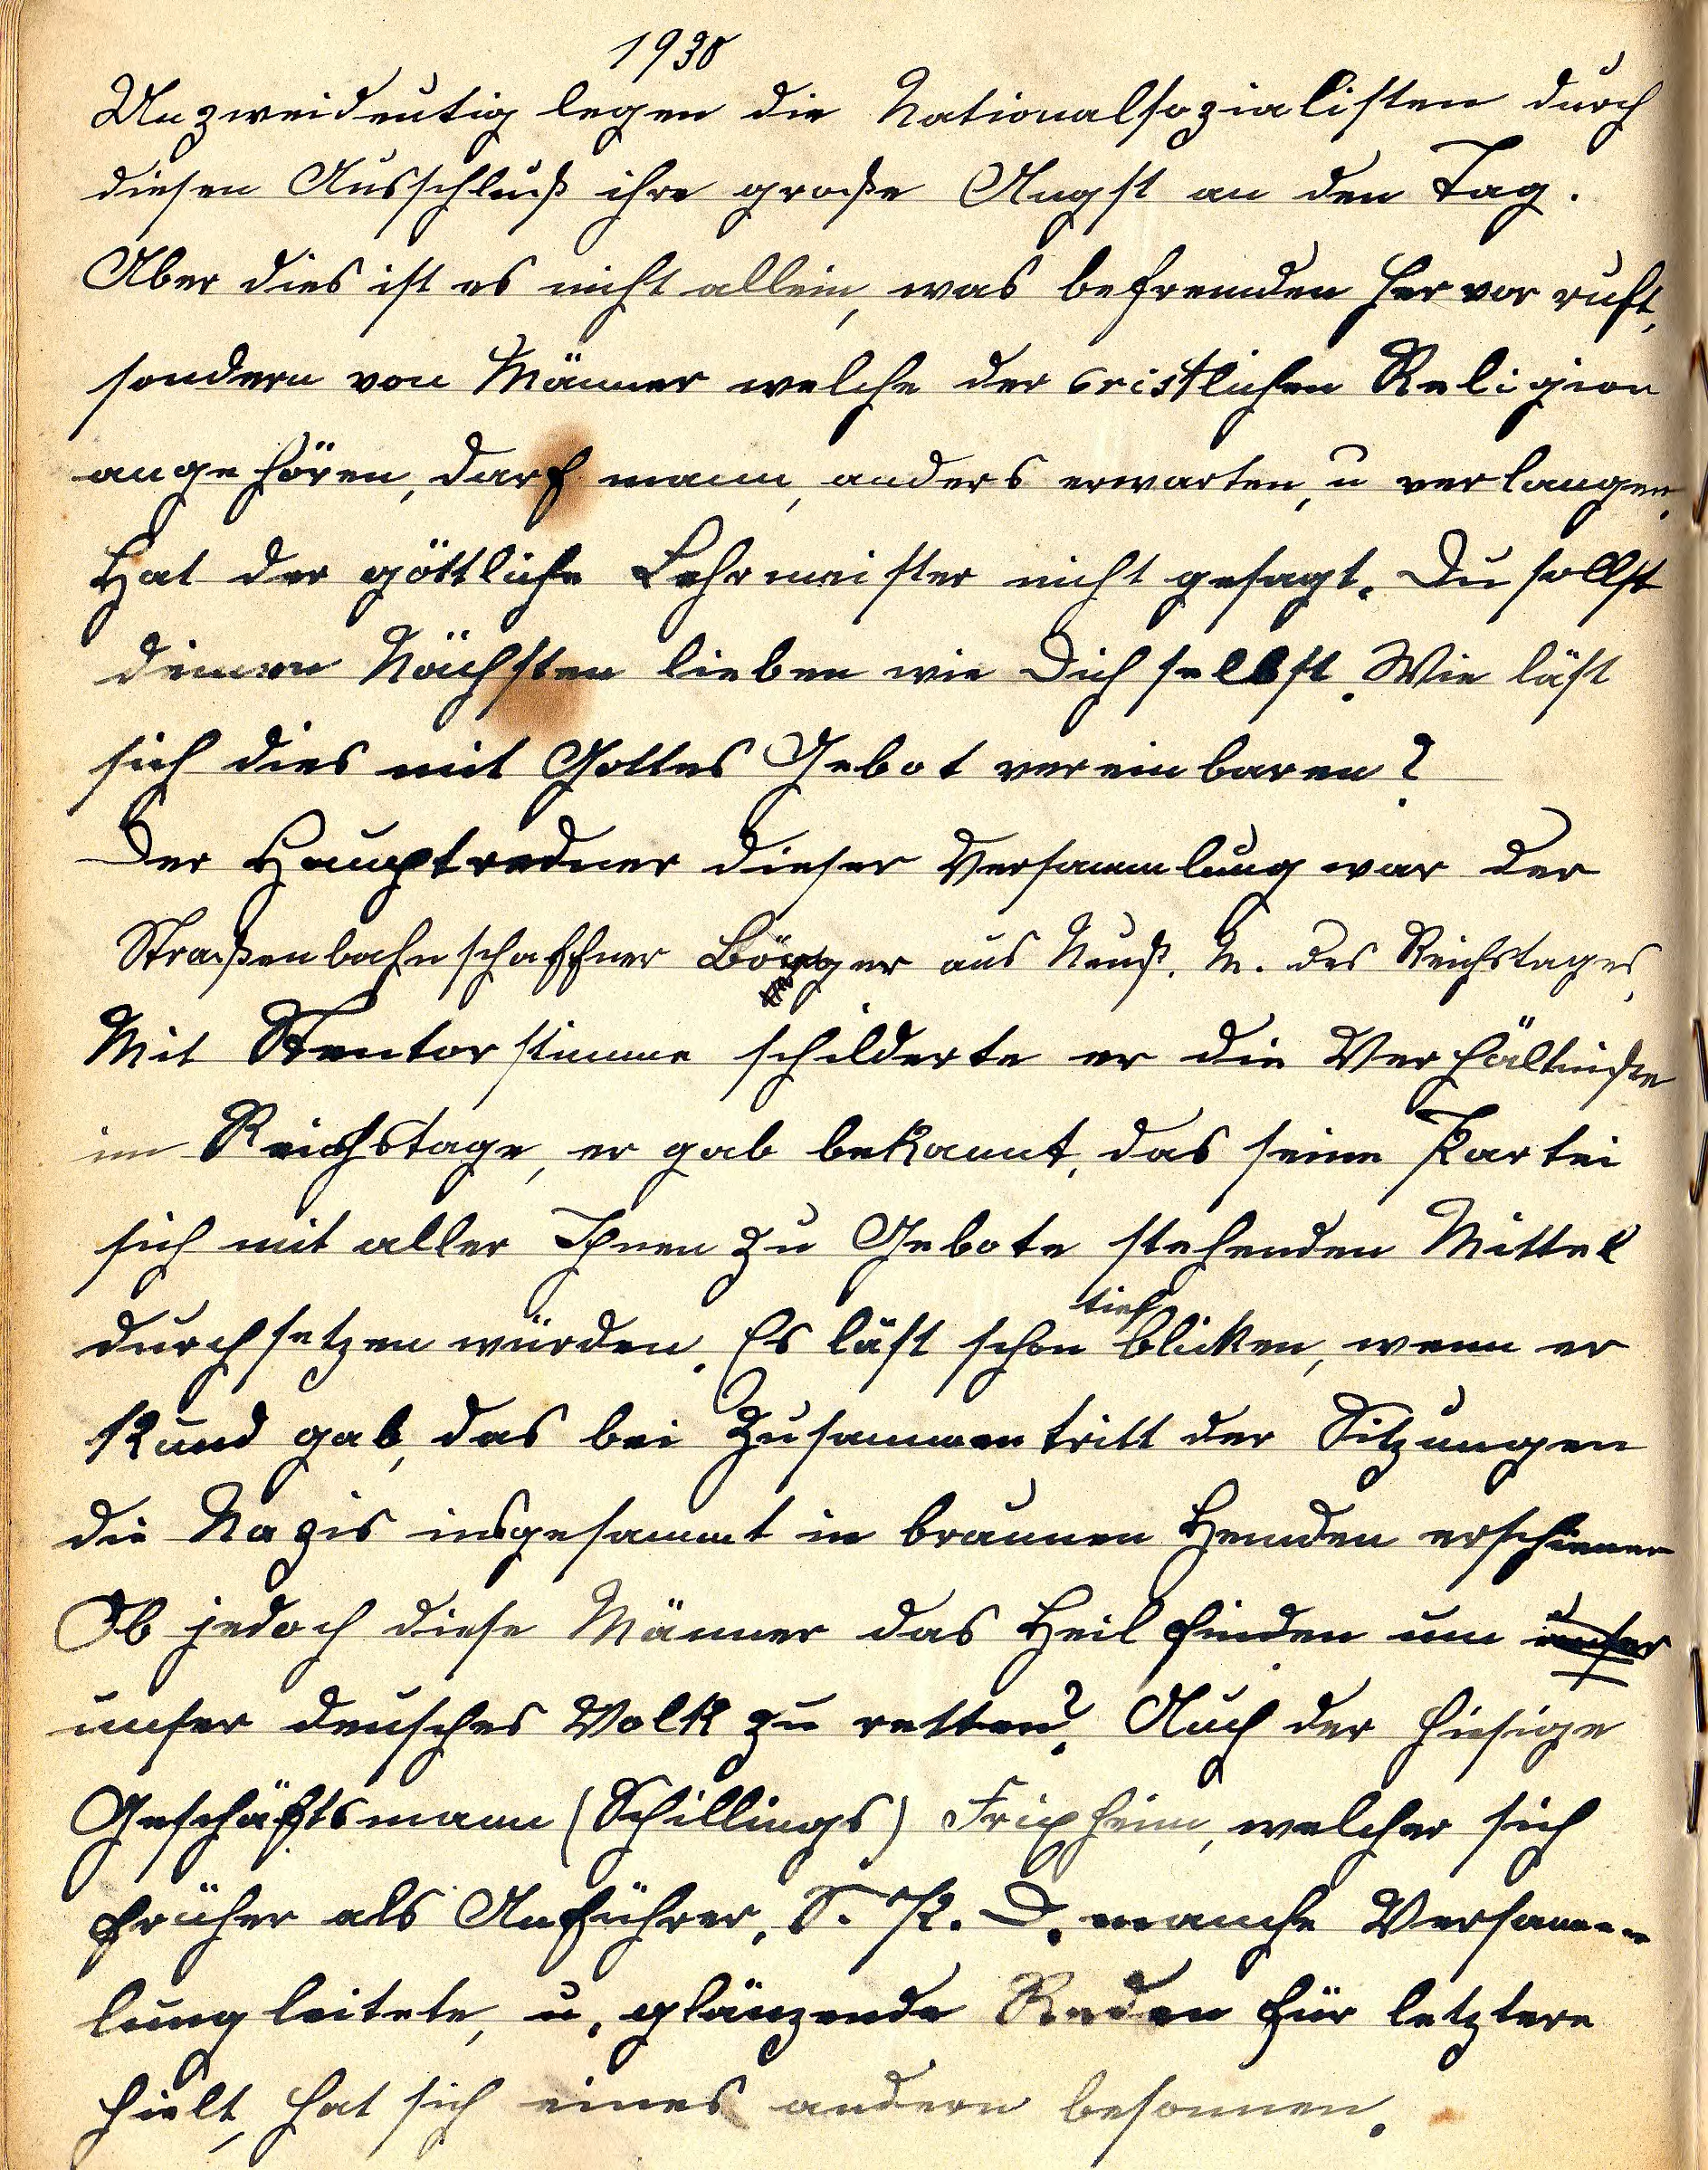 1930
Unzweideutig legen die Nationalsozialisten durch
diesen Ausschluß ihre große Angst an den Tag.
Aber dies ist es nicht allein, was befremden hervor ruft,
sondern von Männer welche der cristlichen Religion
angehören, darf mann, anders erwarten, u verlangen.
Hat der göttliche Lehrmeister nicht gesagt. Du sollst
deinen Nächsten lieben wie Dich selbst. Wie läst
sich dies mit Gottes Gebot vereinbaren?
Der Hauptredner dieser Versammlung war der
Straßenbahnschaffner aus Neuß. M. des Reichstages.
Mit Stentorstimme schilderte er die Verhältniße
im Reichstage, er gab bekannt, das seine Partei
sich mit aller Ihnen zu Gebote stehenden Mittel
durchsetzen würden. Es läst schon tief blicken, wenn er
Kund gab, das bei Zusammentritt der Sitzungen
die Nazis insgesammt in braunen Hemden erschienen
Ob jedoch diese Männer das Heil finden um unser
unser deusches Volk zu retten? Auch der hiesige
Geschäftsmann (Schillings) Frixheim, welcher sich
früher als Anführer, S. P. D. manche Versamm-
lung leitete, u. glänzende Reden für letztere
hielt, hat sich eines andern besonnen.